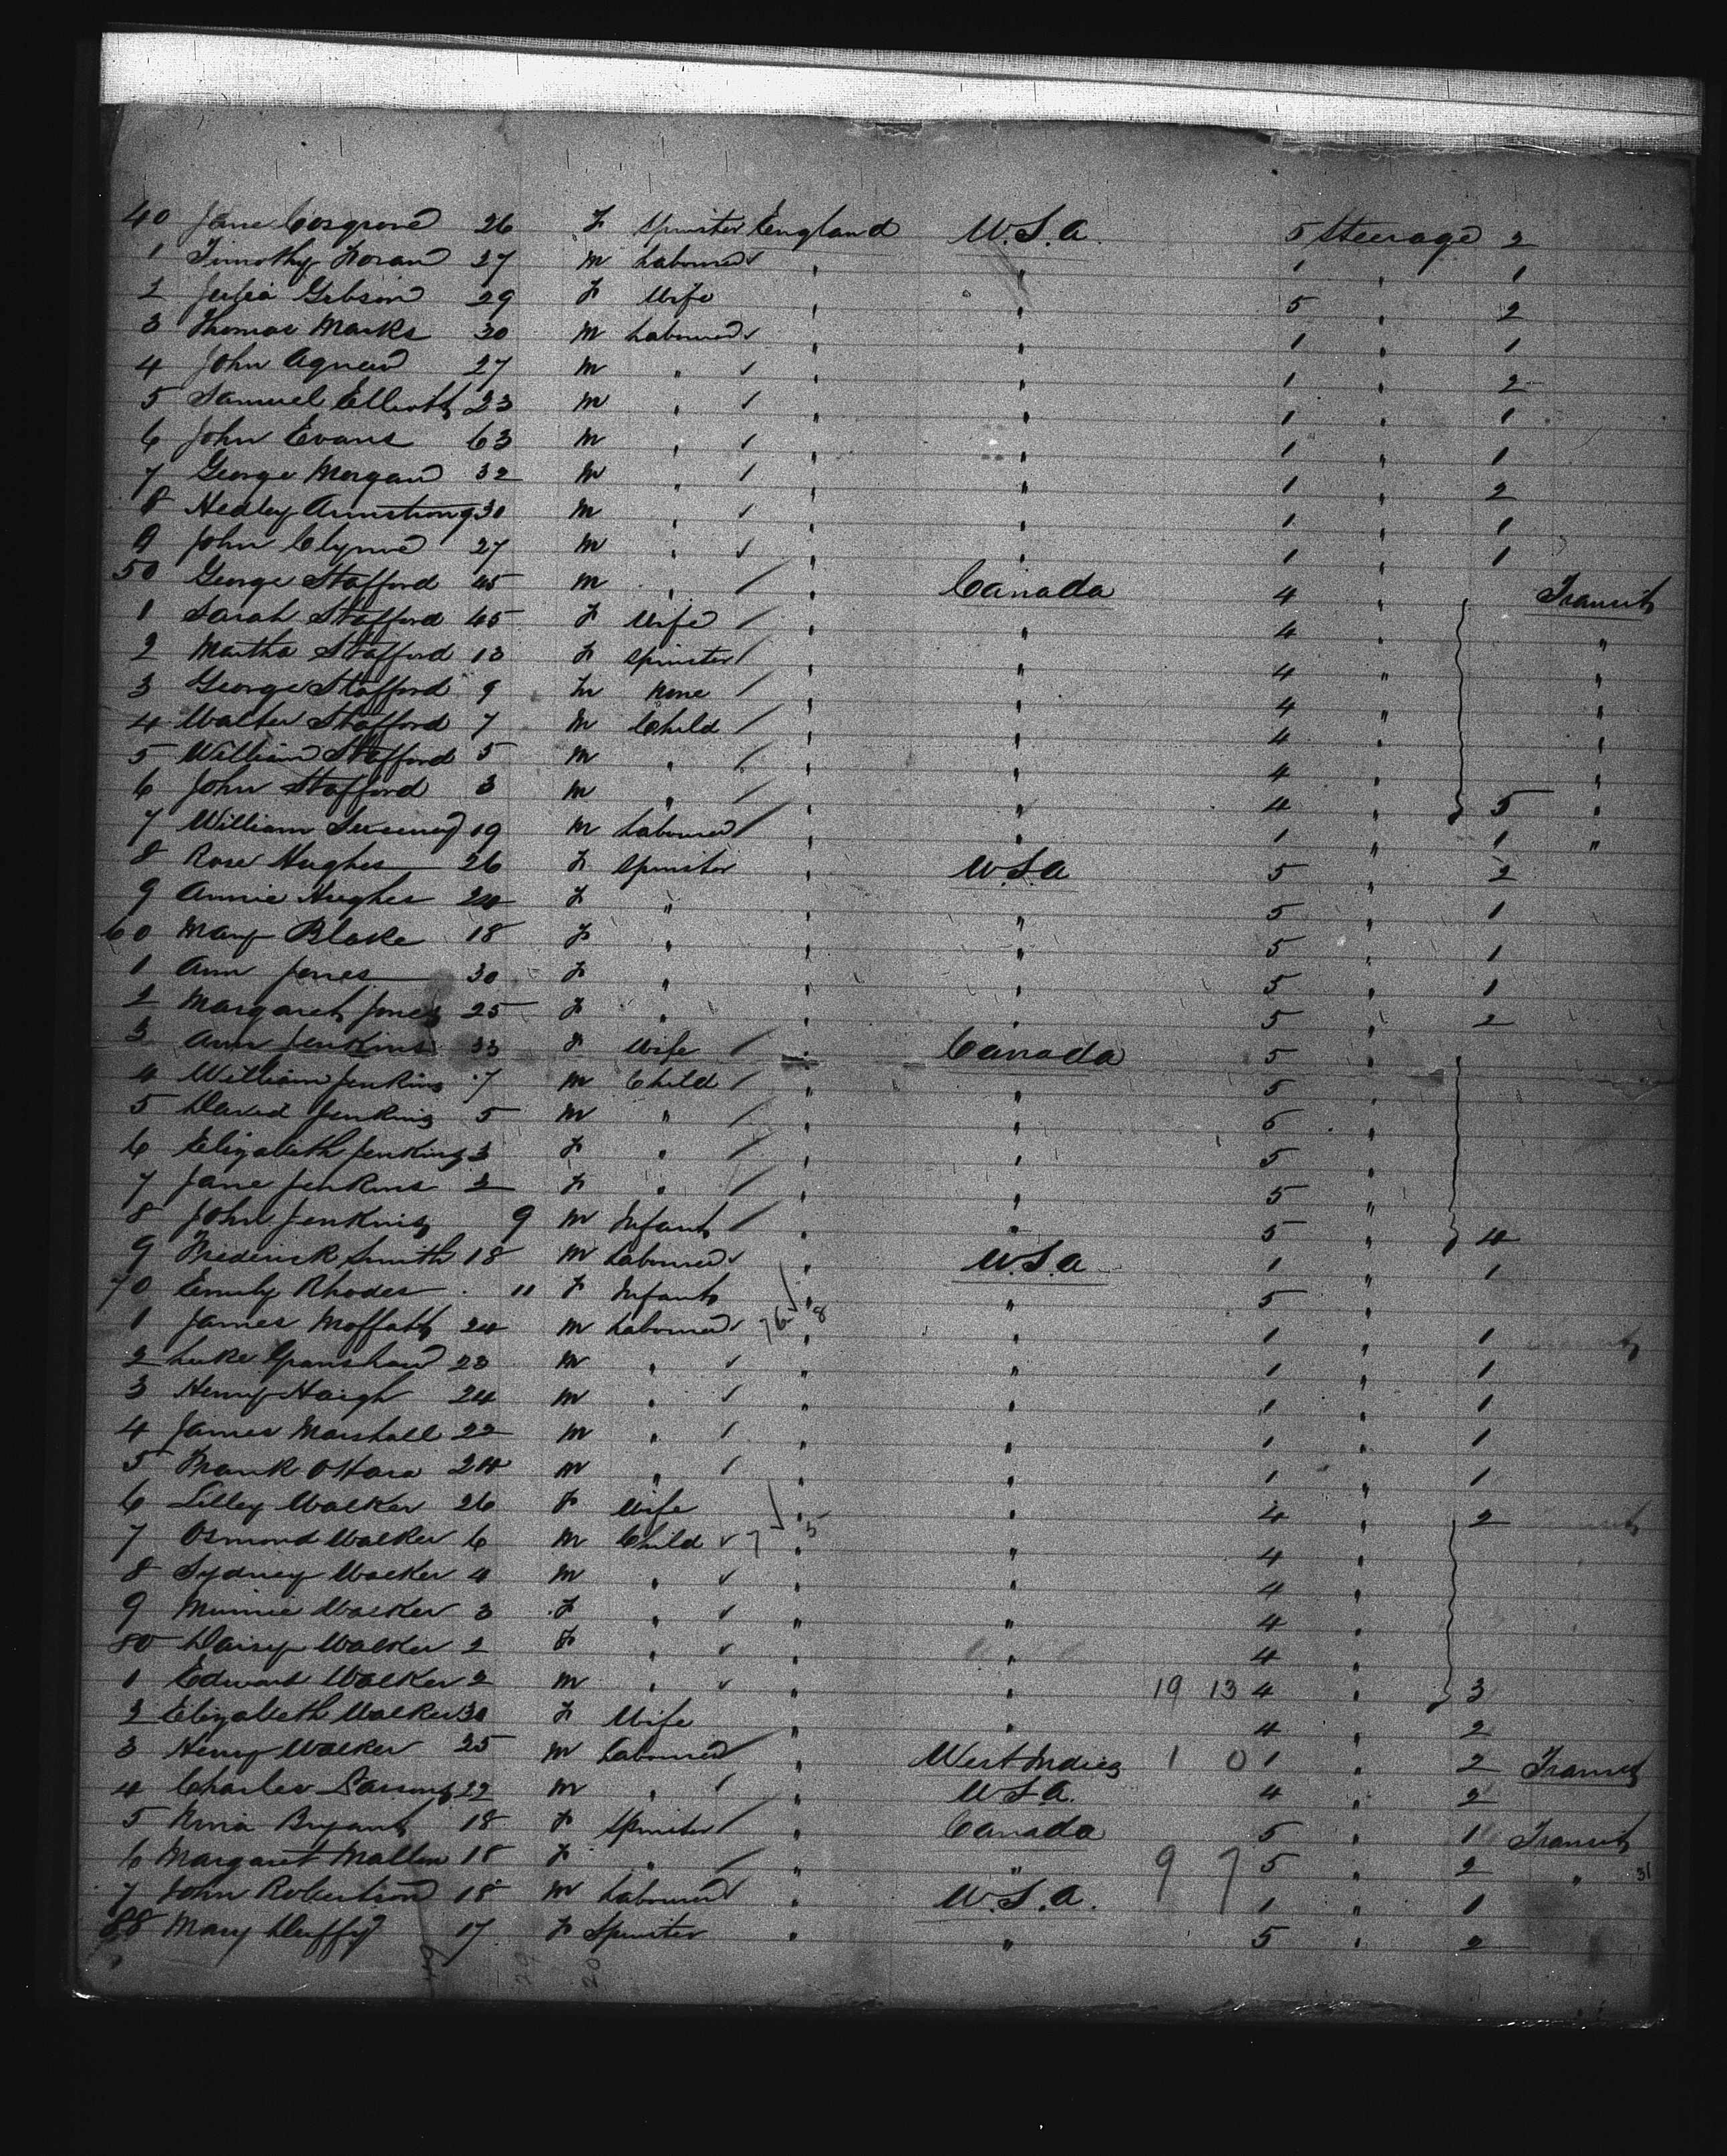 40 Jane Cosgrove 26 F Spinster England U.S.A. 5 Steerage 2
1 Timothy Horan 27 M Labourer " " 1 " 1
2 Julia Gibson 29 F Wife " " 5 " 2
3 Thomas Marks 30 M Labourer " " 1 " 1
4 John Agnew 27 M " " " 1 " 2
5 Samuel Elliott 23 M " " " 1 " 1
6 John Evans 63 M " " " 1 " 1
7 George Morgan 32 M " " " 1 " 2
8 Hedley Armstrong 30 M " " " 1 " 1
9 John Clynne 27 M " " " 1 " 1
50 George Stafford 45 M " " Canada 4 " Transit
1 Sarah Stafford 45 F Wife " " 4 " "
2 Martha Stafford 13 F Spinster " " 4 " "
3 George Stafford 9 M None " " 4 " "
4 Walter Stafford 7 M Child " " 4 " "
5 William Stafford 5 M " " " 4 " "
6 John Stafford 3 M " " " 4 " 5 "
7 William Sweeney 19 M Labourer " " 1 " 1 "
8 Rose Hughes 26 F Spinster " U.S.A 5 " 2
9 Annie Hughes 24 F " " " 5 " 1
60 Mary Blake 18 F " " " 5 " 1
1 Ann Jones 30 F " " " 5 " 1
2 Margaret Jones 25 F " " " 5 " 2
3 Ann Jenkins 33 F Wife " Canada 5 "
4 William Jenkins 7 M Child " " 5 "
5 David Jenkins 5 M " " " 5 "
6 Elizabeth Jenkins 3 F " " " 5 "
7 Jane Jenkins 2 F " " " 5 "
8 John Jenkins 9 M Infant " " 5 " 4
9 Frederick Smith 18 M Labourer " U.S.A 1 " 1
70 Emily Rhodes 11 F Infant " " 5 "
1 James Moffatt 24 M Labourer " " 1 " 1
2 Luke Granshaw 23 M " " " 1 " 1
3 Henry Haigh 24 M " " " 1 " 1
4 James Marshall 22 M " " " 1 " 1
5 Frank O'Hara 24 M " " " 1 " 1
6 Lilley Walker 26 F Wife " " 4 " 2
7 Osmond Walker 6 M Child " " 4 "
8 Sydney Walker 4 M " " " 4 "
9 Minnie Walker 3 F " " " 4 "
80 Daisy Walker 2 F " " " 4 "
1 Edward Walker 2 M " " " 19 13 4 " 3
2 Elizabeth Walker 30 F Wife " " 4 " 2
3 Henry Walker 25 M Labourer " West Indies 1 0 1 " 2 Transit
4 Charles 22 M " " U.S.A. 4 " 2
5 Bryant 18 F Spinster " Canada 5 " 1 Transit
6 Margaret Mallon 18 F " " " 9 7 5 " 2 "
7 John Robertson 18 M Labourer " U.S.A. 1 " 1
88 Mary Duffy 17 F Spinster " " 5 " 2